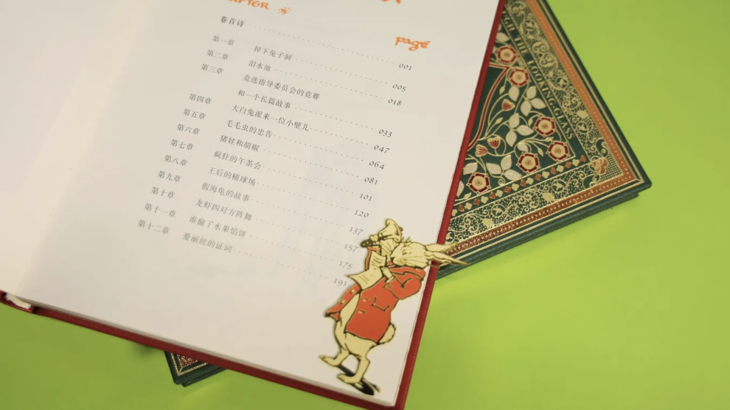 page
卷首诗 001
第一章 掉下兔子洞 005
第二章 泪水池 018
第三章 竞选指导委员会的竞赛
和一个长篇故事 033
第四章 大白兔派来一位小壁儿 047
第五章 毛毛虫的忠告 064
第六章 猪娃和胡椒 081
第七章 疯狂的午茶会 101
第八章 王后的槌球场 120
第九章 假海龟的故事 137
第十章 龙虾四对方阵舞 157
第十一章 谁偷了水果馅饼 175
第十二章 爱丽丝的证词 191